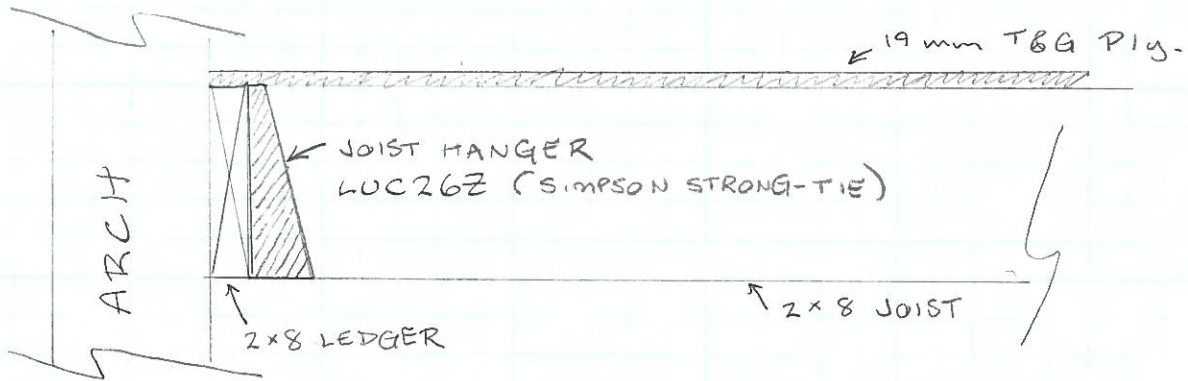 19 mm T&G Ply.
JOIST HANGER
LUC26Z (SIMPSON STRONG-TIE)
ARCH
2x8 LEDGER
2x8 JOIST